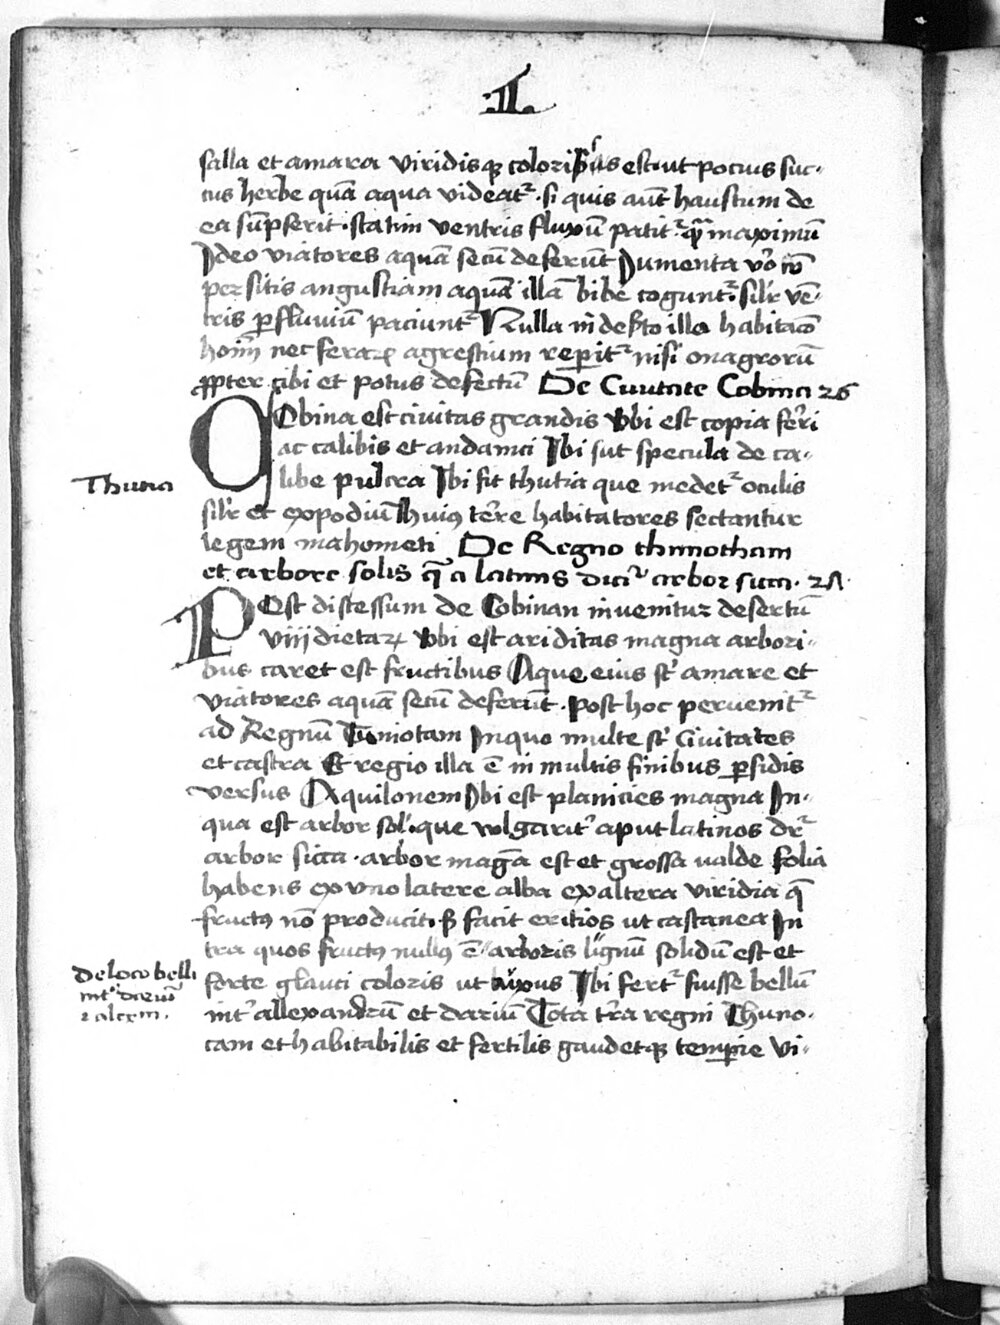 .I.
salsa et amara viridisq; coloris est ut pocius suc-
cus herbe quā aqua videat̉. si quis aūt haustum de
ea sūpserit. statim ventris fluxū patit̉ q̄ maximū
Ideo viatores aquā secū deferūt Iumenta v̉o cū
per sitis angustiam aquā illā bibe̅ cogunt̉. silr̉ vē-
tris ꝓfluviū paciunt̉ Nulla in deẜto illo habitac̄o
hoīm nec feraꝝ agrestium reperit̉ nisi onagrorū
ꝓpter cibi et potus defectū De Civitate Cobina 26
Cobina est civitas grandis Vbi est copia fer̉i
ac calibis et andanici Ibi sūt specula de ca-
libe pulcra Ibi fit thutia que medet̉ oculis
Thutia
silr̉ et expodiū huiꝰ ter̉re habitatores sectantur
legem mahometi De Regno thunotham
et arbore solis q̄ a latinis dicit̉ arbor sicca. 2Λ.
Post discessum de Cobinan invenitur desertū
viij dietaꝝ Vbi est ariditas magna arbori-
bus caret est fructibus Aque eius st̉ amare et
viatores aquā secū deferūt. Post hoc pervenit̉
ad Regnū Tūniotam In quo multe st̉ Civitates
et castra Et regio illa ē in multis finibus ꝑsidis
versus Aquilonem Ibi est planicies magna In
qua est arbor sol̉. que vulgarit̉ aput latinos dr̉
arbor sicca. arbor magā est et grossa valde folia
habens ex uno latere alba ex altera viridia q̄
fructꝰ nō producit. ẜ facit ericios ut castanea In
tra quos fructꝰ nullꝰ ē arboris lignū solidū est et
de loco belli
int̉ dariū
⁊ alexm.
forte glauci coloris ut buxus Ibi fert̉ fuisse bellū
int̉ allexandrū et dariū Tota t̉ra regni Thuno-
cam et habitabilis et fertilis gaudetq; temꝑie Vi-